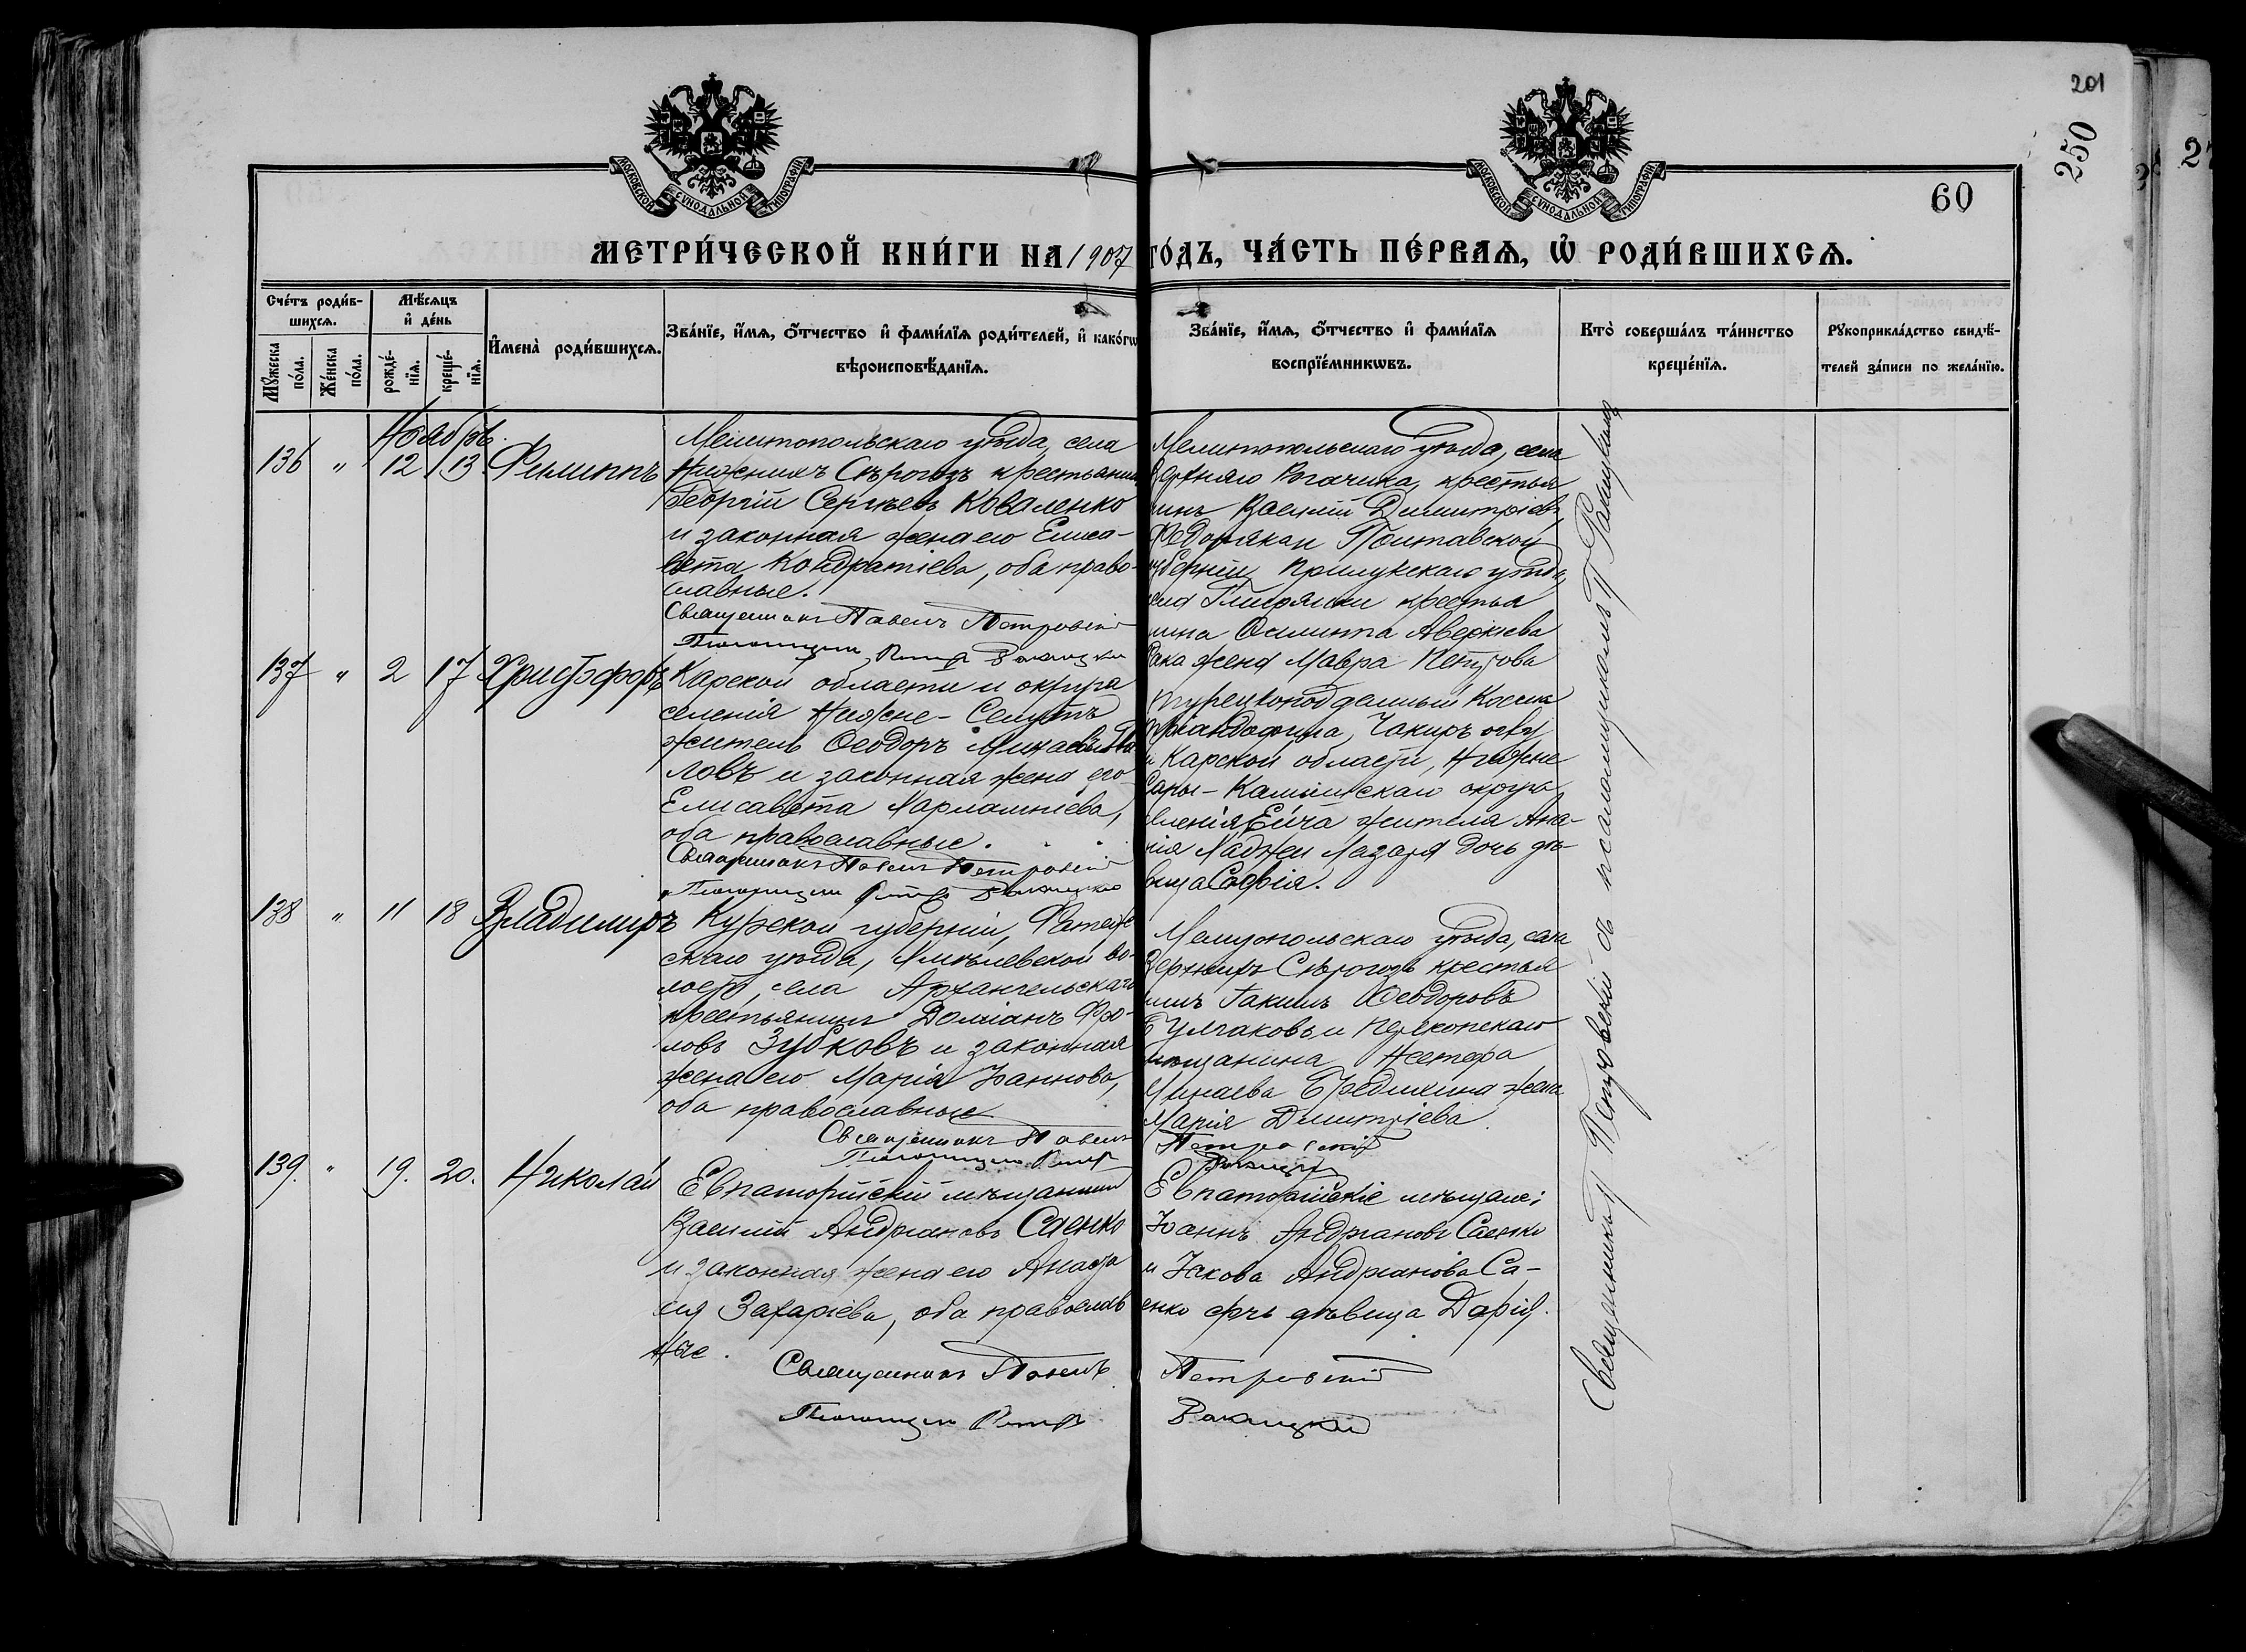 201
250
27
60
МОСКОВСКОЙ СѴНОДАЛЬНОЙ ТИПОГРАФІИ
МОСКОВСКОЙ СѴНОДАЛЬНОЙ ТИПОГРАФІИ
МЕТРИ́ЧЕСКОЙ КНИ́ГИ НА 1907 ГО́ДЪ, ЧА́СТЬ ПЕ́РВАѦ, Ѽ РОДИ́ВШИХСѦ.
Сче́тъ роди́в-
шихсѧ.
Мꙋ́жеска по́ла.
Же́нска по́ла.
Мѣ́сѧцъ и҆ де́нь
рожде́-нїѧ.
креще́-нїѧ.
И҆мена̀ роди́вшихсѧ.
Зва́нїе, и҆́мѧ, ѻ҆́тчество и҆ фами́лїѧ роди́телей, и҆ како́гѡ
вѣроисповѣ́данїѧ.
Зва́нїе, и҆́мѧ, ѻ҆́тчество и҆ фами́лїѧ
воспрїе́мникѡвъ.
Кто̀ соверша́лъ та́инство
креще́нїѧ.
Рꙋкоприкла́дство свидѣ́-
телей за́писи по жела́нїю.
Ноябрь.
136 " 12 13 Филиппъ
Мелитопольскаго уѣзда, села
Нижнихъ Сѣрогозъ крестьянинъ
Георгій Сергѣевъ Коваленко
и законная жена его Елиса-
вета Кондратіева, оба право-
славные.
Священникъ Павелъ Петровскій
Псаломщикъ Петръ
Мелитопольскаго уѣзда, села
Верхняго Рогачика, крестья
нинъ Василій Димитріевъ
и Полтавской
губерніи Прилукскаго уѣзда,
села крестья
нина Аверкіева
жена Мавра Петрова
137 " 2 17 Христофоръ
Карской области и округа
селенія Нижне-
житель Ѳеодоръ
ловъ и законная жена его
Елисавета Харлампіева,
оба православные.
Священникъ Павелъ Петровскій
Псаломщикъ Петръ
Турецкоподданный Косма
Чакиръ оглу
и Карской области, Нижне
Сары-Камышскаго округа,
селенія жителя Ана-
нія Лазаря дочь дѣ-
вица Софія.
138 " 11 18 Владимиръ
Курской губерніи, Фатеж
скаго уѣзда, во-
лости, села Архангельскаго
крестьянинъ Доміанъ Фро-
ловъ Зубковъ и законная
жена его Марія Іоаннова,
оба православные
Священникъ Павелъ Петровскій
Псаломщикъ Петръ
Мелитопольскаго уѣзда, села
Верхнихъ Сѣрогозъ крестья
нинъ Іакимъ Ѳеодоровъ
Булгаковъ и Перекопскаго
мѣщанина Нестора
Минаева жена
Марія Димитріева.
139. " 19. 20. Николай
Евпаторійскій мѣщанинъ
Василій Андріановъ Саенко
и законная жена его Анаста
сія Захаріева, оба православ
ные.
Священникъ Павелъ Петровскій
Псаломщикъ Петръ
Евпаторійскіе мѣщане:
Іоаннъ Андріановъ Саенко
и Іакова Андріанова Са-
енко дочь дѣвица Дарія.
Священникъ П. Петровскій съ псаломщикомъ П.